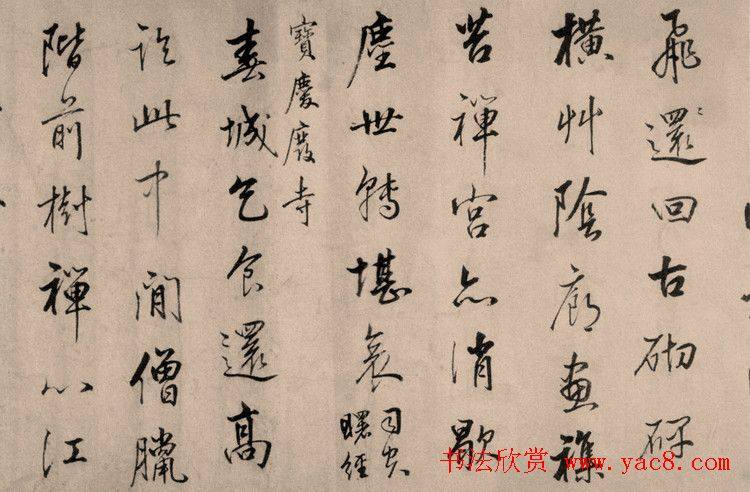 飛還回古砌碑
橫艸陰廊畫雜
苔禪宮亦消歇
塵世轉堪哀司空
曙經
寶慶廢寺
春城乞食還高
論此中閒僧臘
階前樹禪心江
书法欣赏 www.yac8.com